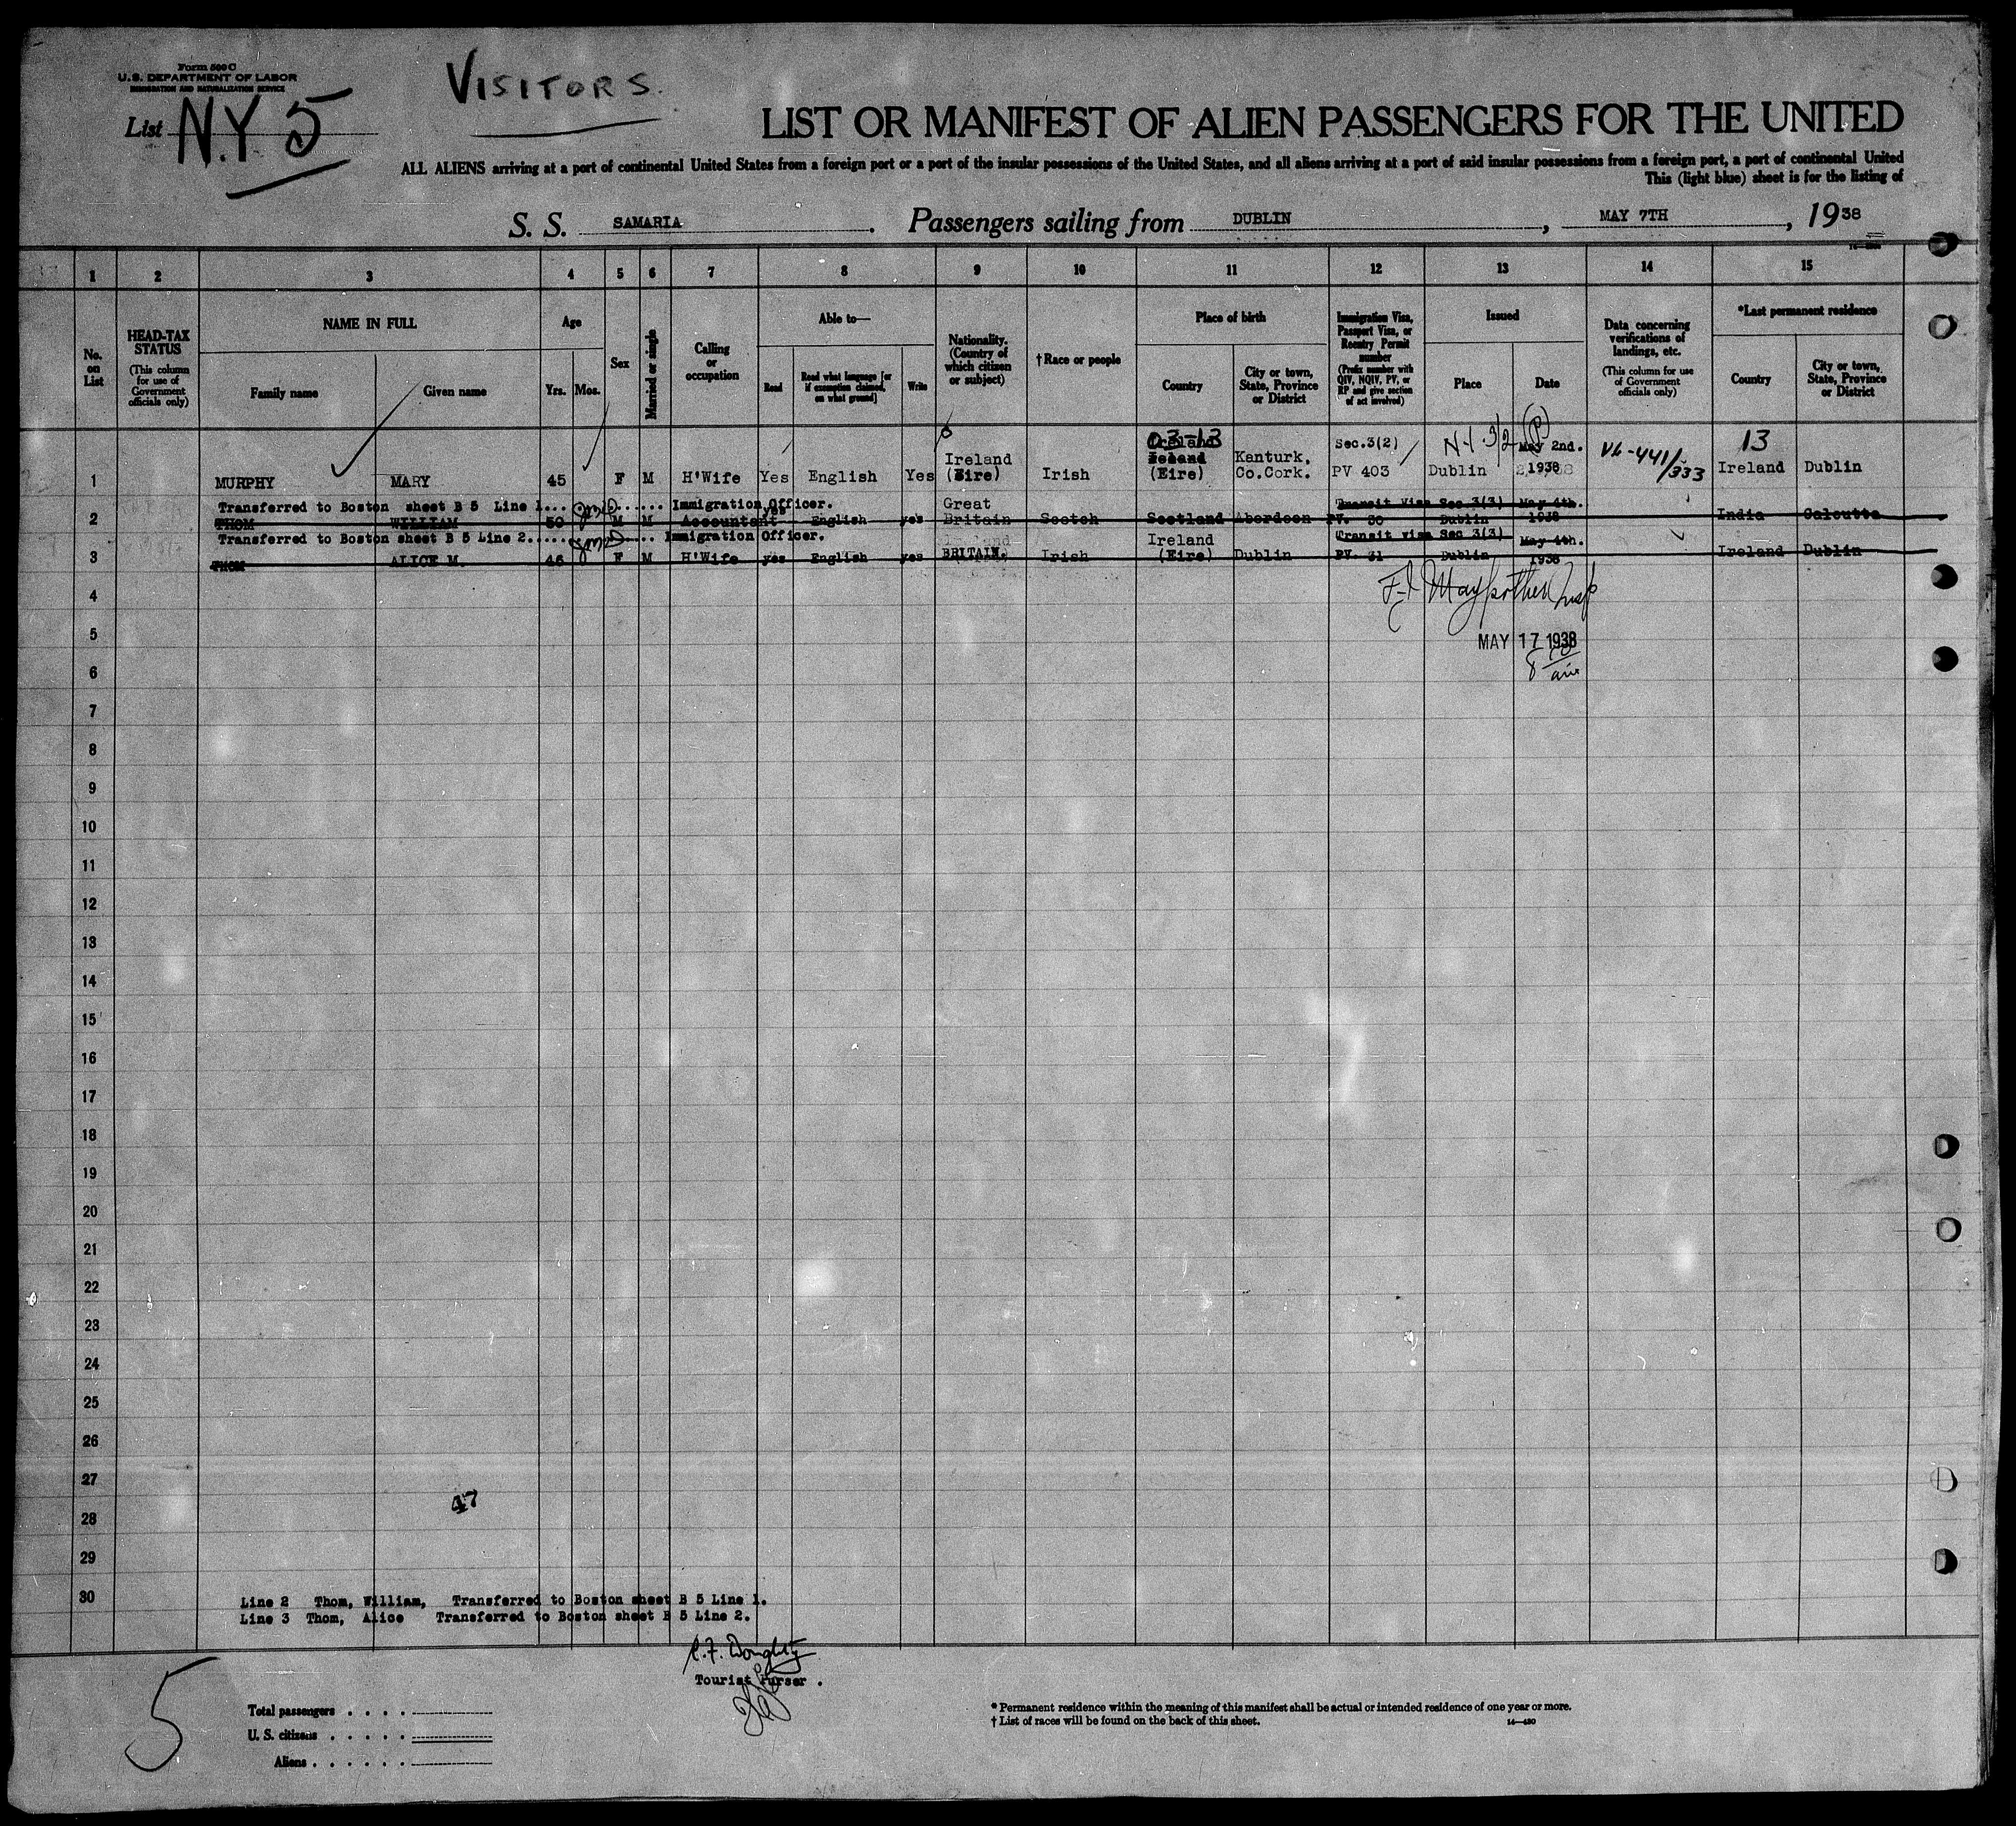 Form 500 C
U.S. DEPARTMENT OF LABOR
IMMIGRATION AND NATURALIZATION SERVICE
VISITORS.
List N.Y 5
LIST OR MANIFEST OF ALIEN PASSENGERS FOR THE UNITED
ALL ALIENS arriving at a port of continental United States from a foreign port or a port of the insular possessions of the United States, and all aliens arriving at a port of said insular possessions from a foreign port, a port of continental United
This (light blue) sheet is for the listing of
S. S. SAMARIA. Passengers sailing from DUBLIN, MAY 7TH, 1938
1 2 3 4 5 6 7 8 9 10 11 12 13 14 15
No. on List
HEAD-TAX STATUS
(This column for use of Government officials only)
NAME IN FULL
Family name
Given name
Age
Yrs. Mos.
Sex
Married or single
Calling or occupation
Able to—
Read
Read what language [or if exemption claimed, on what ground]
Write
Nationality. (Country of which citizen or subject)
†Race or people
Place of birth
Country
City or town, State, Province or District
Immigration Visa, Passport Visa, or Reentry Permit number
(Prefix number with QIV, NQIV, PV, or RP and give section of act involved)
Issued
Place
Date
Data concerning verifications of landings, etc.
(This column for use of Government officials only)
*Last permanent residence
Country
City or town, State, Province or District
1 MURPHY MARY 45 F M H'Wife Yes English Yes Ireland (Eire) Irish (Eire) Kanturk, Co.Cork. Sec.3(2) PV 403 Dublin May 2nd. 1938 V6-441/333 13 Ireland Dublin
Transferred to Boston sheet B 5 Line 1... ...... Immigration Officer.
2 THOM WILLIAM 50 M M Accountant yes English yes Great Britain Scotch Scotland Aberdeen Transit Visa Sec 3(3) PV. 30 Dublin May 4th. 1938 India Calcutta
Transferred to Boston sheet B 5 Line 2...... .... Immigration Officer.
3 THOM ALICE M. 46 F M H'Wife yes English yes BRITAIN. Irish Ireland (Eire) Dublin Transit visa Sec 3(3) PV. 31 Dublin May 4th. 1938 Ireland Dublin
4
5 MAY 17 1938
6
7
8
9
10
11
12
13
14
15
16
17
18
19
20
21
22
23
24
25
26
27
47
28
29
30
Line 2 Thom, William, Transferred to Boston sheet B 5 Line 1.
Line 3 Thom, Alice Transferred to Boston sheet B 5 Line 2.
Tourist Purser.
5
Total passengers
U. S. citizens
Aliens
* Permanent residence within the meaning of this manifest shall be actual or intended residence of one year or more.
† List of races will be found on the back of this sheet.